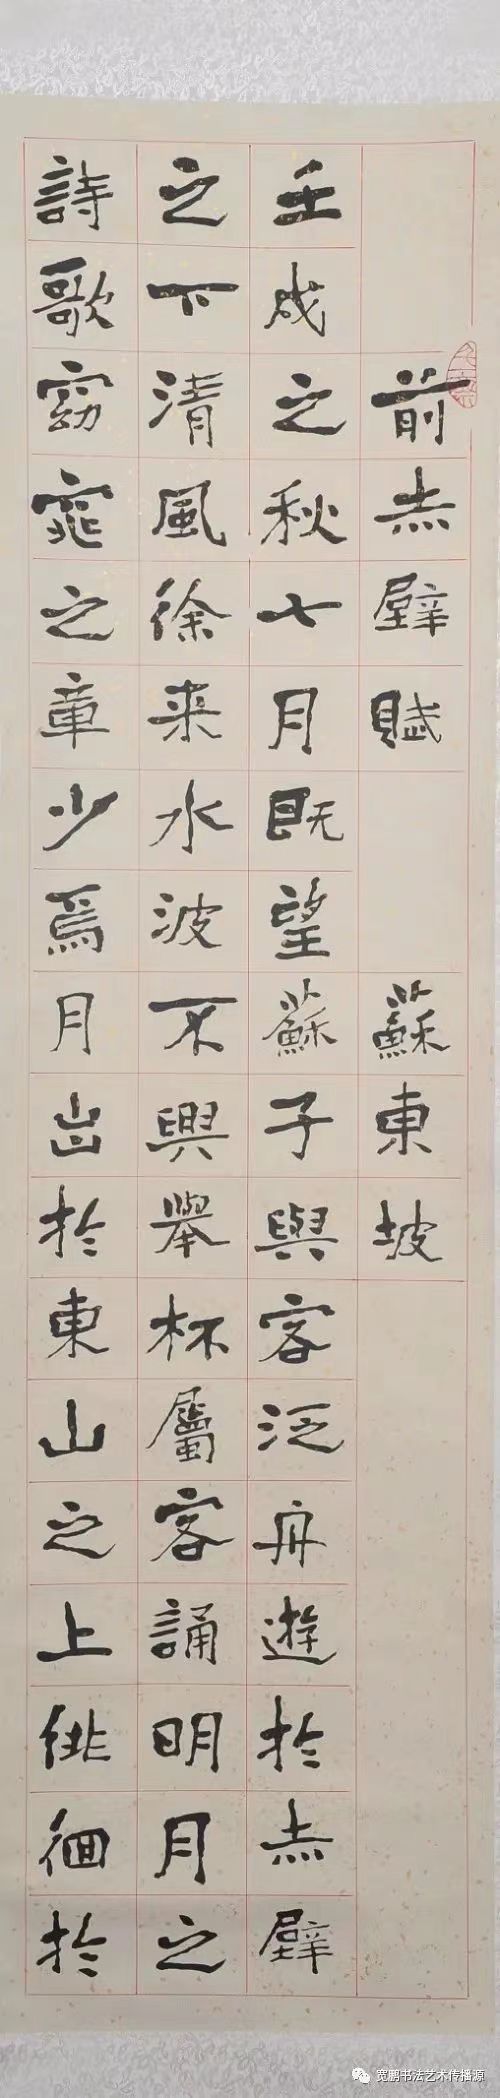 前赤壁賦 蘇東坡
壬戌之秋七月既望蘇子與客泛舟遊於赤壁
之下清風徐来水波不興舉杯屬客誦明月之
詩歌窈窕之章少焉月出於東山之上徘徊於
宽鹏书法艺术传播源